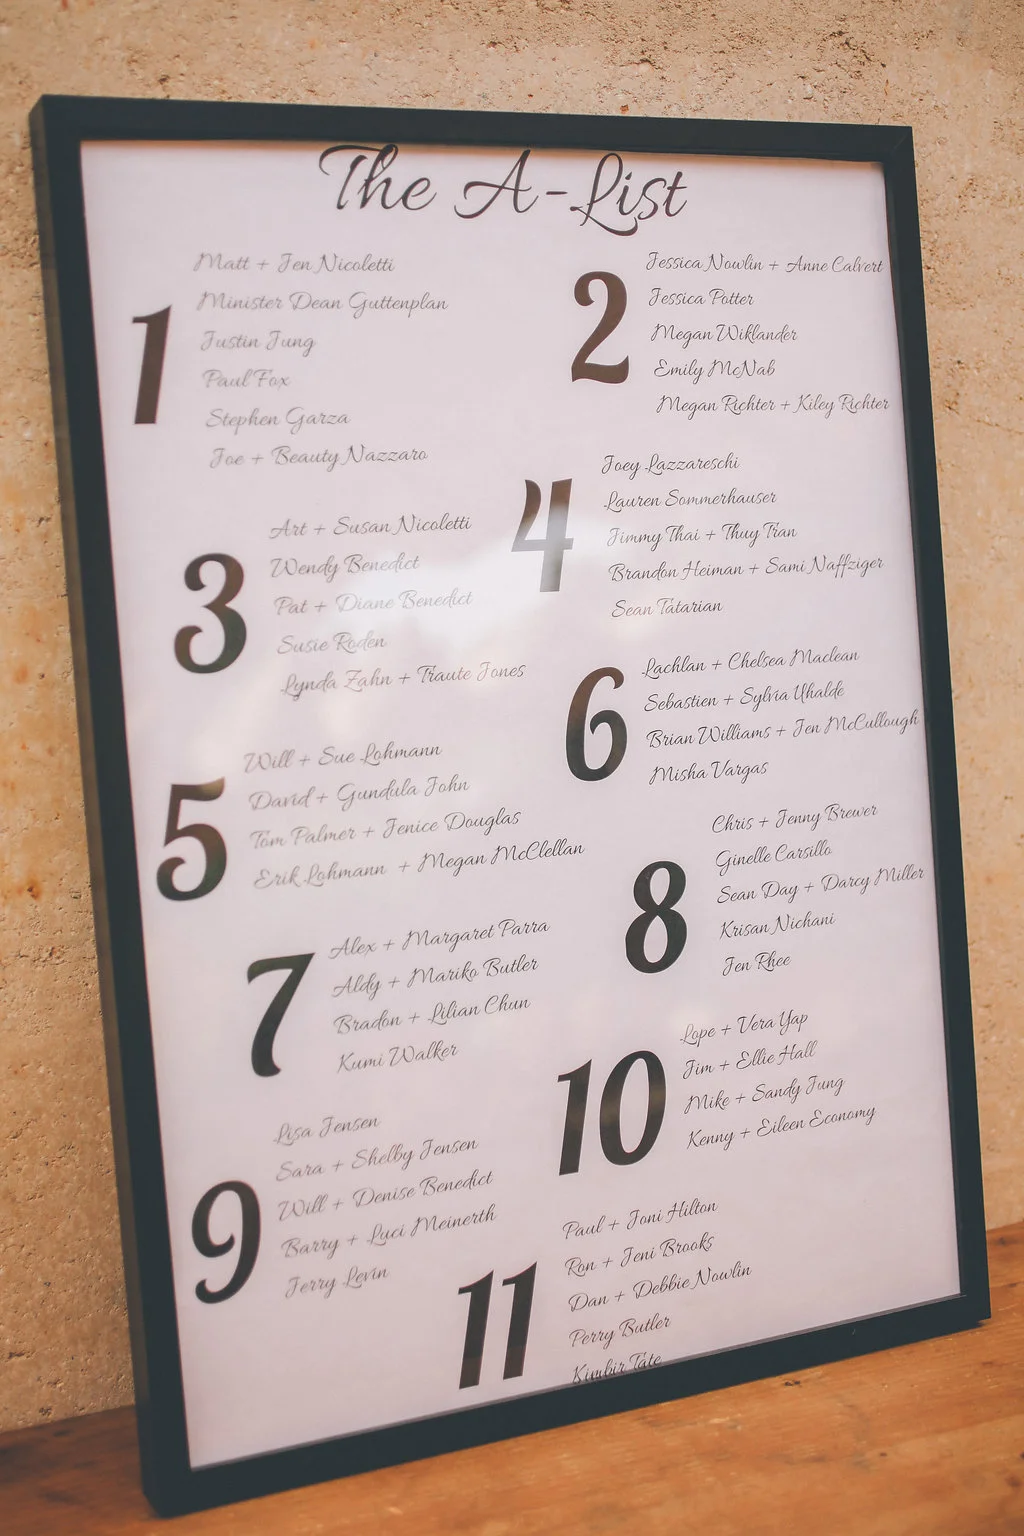 The A-List
1
Matt + Jen Nicoletti
Minister Dean Guttenplan
Justin Jung
Paul Fox
Stephen Garza
Joe + Beauty Nazzaro
2
Jessica Nowlin + Anne Calvert
Jessica Potter
Megan Wiklander
Emily McNab
Megan Richter + Kiley Richter
3
Art + Susan Nicoletti
Wendy Benedict
Pat + Diane Benedict
Susie Roden
Lynda Zahn + Traute Jones
4
Joey Lazzareschi
Lauren Sommerhauser
Jimmy Thai + Thuy Tran
Brandon Heiman + Sami Naffziger
Sean Tatarian
5
Will + Sue Lohmann
David + Gundula John
Tom Palmer + Jenice Douglas
Erik Lohmann + Megan McClellan
6
Lachlan + Chelsea Maclean
Sebastien + Sylvia Uhalde
Brian Williams + Jen McCullough
Misha Vargas
7
Alex + Margaret Parra
Aldy + Mariko Butler
Bradon + Lilian Chun
Kumi Walker
8
Chris + Jenny Brewer
Ginelle Carsillo
Sean Day + Darcy Miller
Krisan Nichani
Jen Rhee
9
Lisa Jensen
Sara + Shelby Jensen
Will + Denise Benedict
Barry + Luci Meinerth
Jerry Levin
10
Lope + Vera Yap
Jim + Ellie Hall
Mike + Sandy Jung
Kenny + Eileen Economy
11
Paul + Joni Hilton
Ron + Jeni Brooks
Dan + Debbie Nowlin
Perry Butler
Kimbir Tate